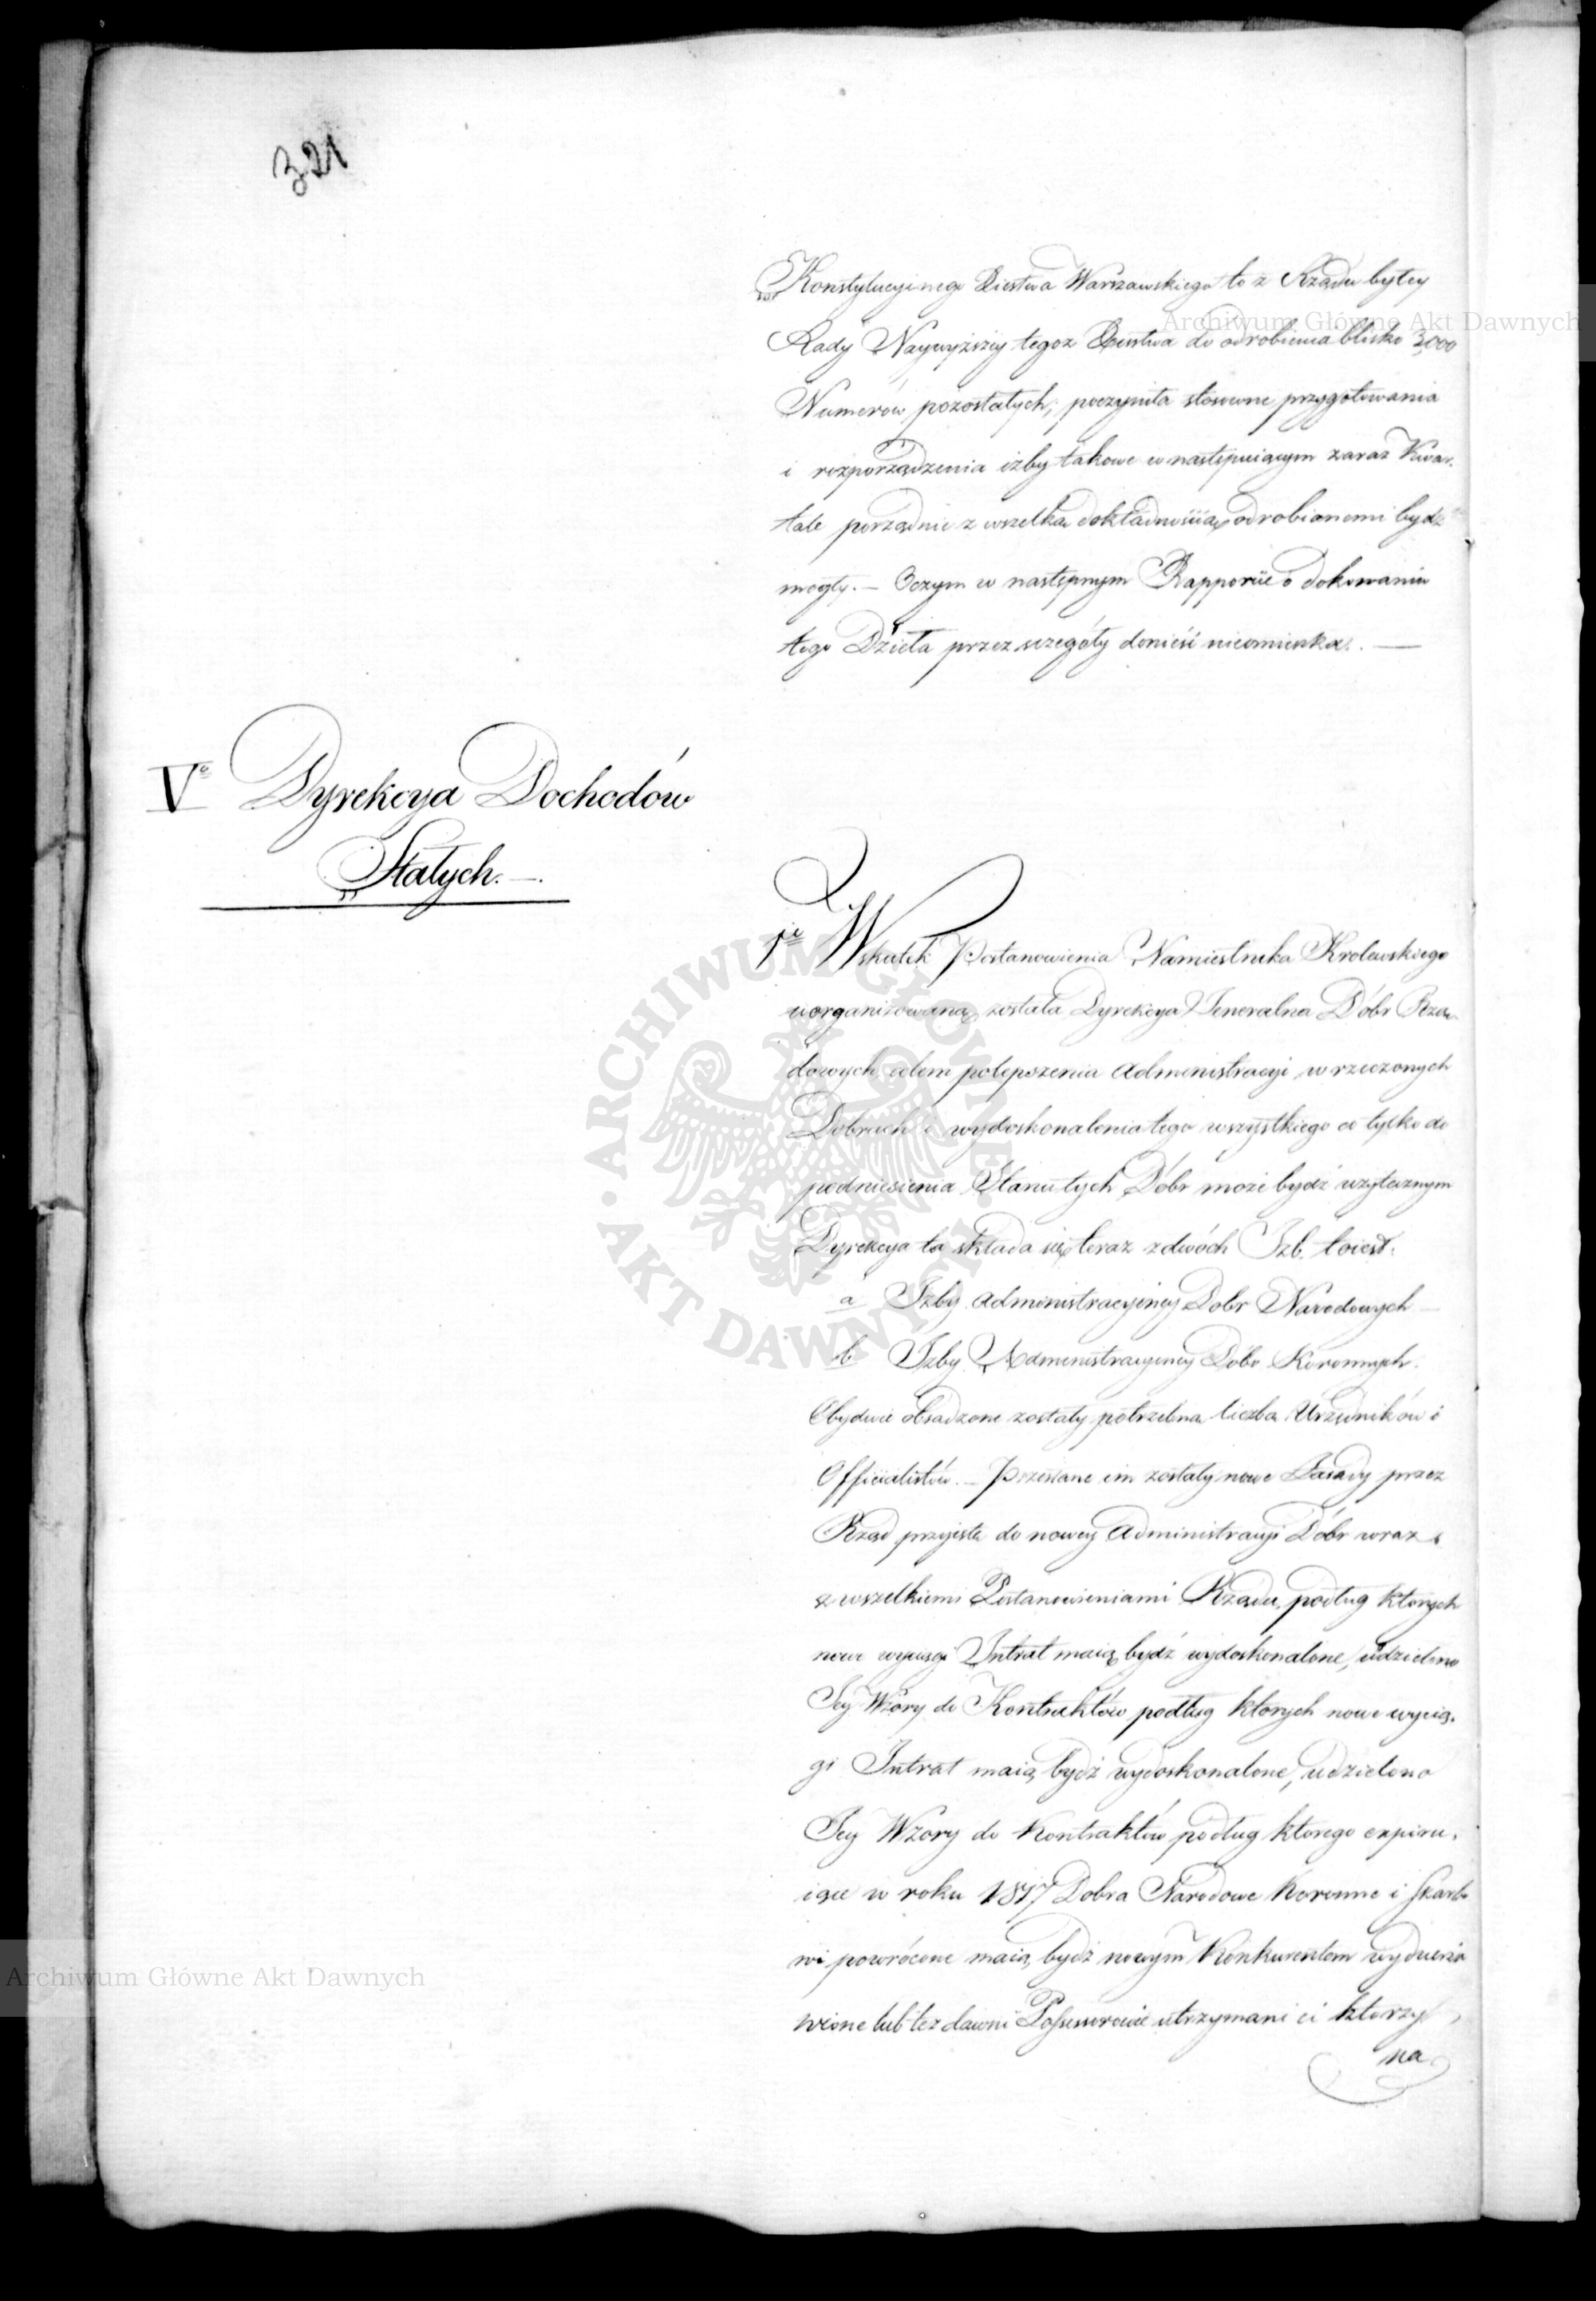 321
Konstytucyinego Xięstwa Warszawskiego to z Rządu byłey
Rady Naywyższey tegoż Xięstwa do odrobienia blisko 3,000
Numerów pozostałych, poczyniła stosowne przygotowania
i rozporządzenia iżby takowe w następuiącym zaraz Kwar-
tale porządnie z wszelką dokładnością odrobionemi bydź
mogły. — O czym w następnym Rapporcie o dokonaniu
tego Dzieła przez szczegóły donieść nieomieszka. —
V° Dyrekcya Dochodów
Stałych. —
1e Wskutek Postanowienia Namiestnika Krolewskiego
uorganizowaną została Dyrekcya Jeneralna Dóbr Rzą-
dowych celem polepszenia administracyi w rzeczonych
Dobrach i wydoskonalenia tego wszystkiego co tylko do
podniesienia Stanu tych Dóbr może bydź użytecznym
Dyrekcya ta składa się teraz z dwóch Izb. toiest:
a Izby administracyiney Dobr Narodowych —
b. Izby Administracyiney Dobr Koronnych.
Obydwie obsadzone zostały potrzebną liczbą Urzędników i
Officialistów. — Przesłane im zostały nowe Zasady przez
Rząd przyięte do nowey Administracyi Dóbr wraz
z wszelkiemi Postanowieniami Rządu, podług ktorych
nowe wyciągi Intrat maią bydź wydoskonalone, udzielono
Jey Wzory do Kontraktów podług ktorych nowe wycią-
gi Intrat maią bydź wydoskonalone, udzielono
Jey Wzory do Kontraktów podług ktorego expiru-
iące w roku 1817 Dobra Narodowe Koronne i Skarbo
wi powrócone maią bydź nowym Konkurentom wydzierża
wione lub też dawni Possessorowie utrzymani ci ktorzy
na
Archiwum Główne Akt Dawnych
Archiwum Główne Akt Dawnych
ARCHIWUM GŁÓWNE AKT DAWNYCH